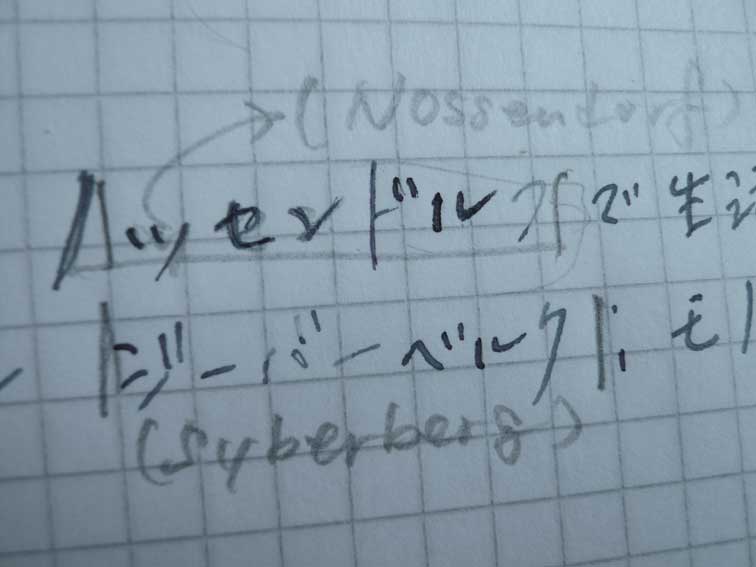 (Nossendorf)
ノッセンドルフで生
ジーバーベルク; モ
(Syberberg)